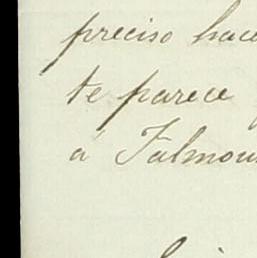 preciso hace
te parece
a Falmou